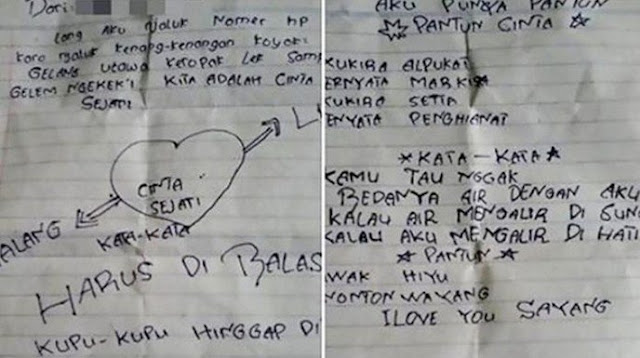 Dari:
Long AKU NJALUK NOMER HP
KARO NJALUK KENANG-KENANGAN KOYOK
GELANG UTOWO KETOPAK LEK SAM
GELEM NGEKEK'I KITA ADALAH CINTA
SEJATI
CINTA
SEJATI
ALANG
KATA-KATA
HARUS DI BALAS
KUPU-KUPU HINGGAP DI
AKU PUNYA PANTUN
PANTUN CINTA
KUKIRA ALPUKAT
ERNYATA MARKISA
KUKIRA SETIA
ENYATA PENGHIANAT
KATA-KATA
KAMU TAU NGGAK
BEDANYA AIR DENGAN AKU
KALAU AIR MENGALIR DI SUN
KALAU AKU MENGALIR DI HATI
PANTUN
WAK HIYU
NONTON WAYANG
I LOVE YOU SAYANG